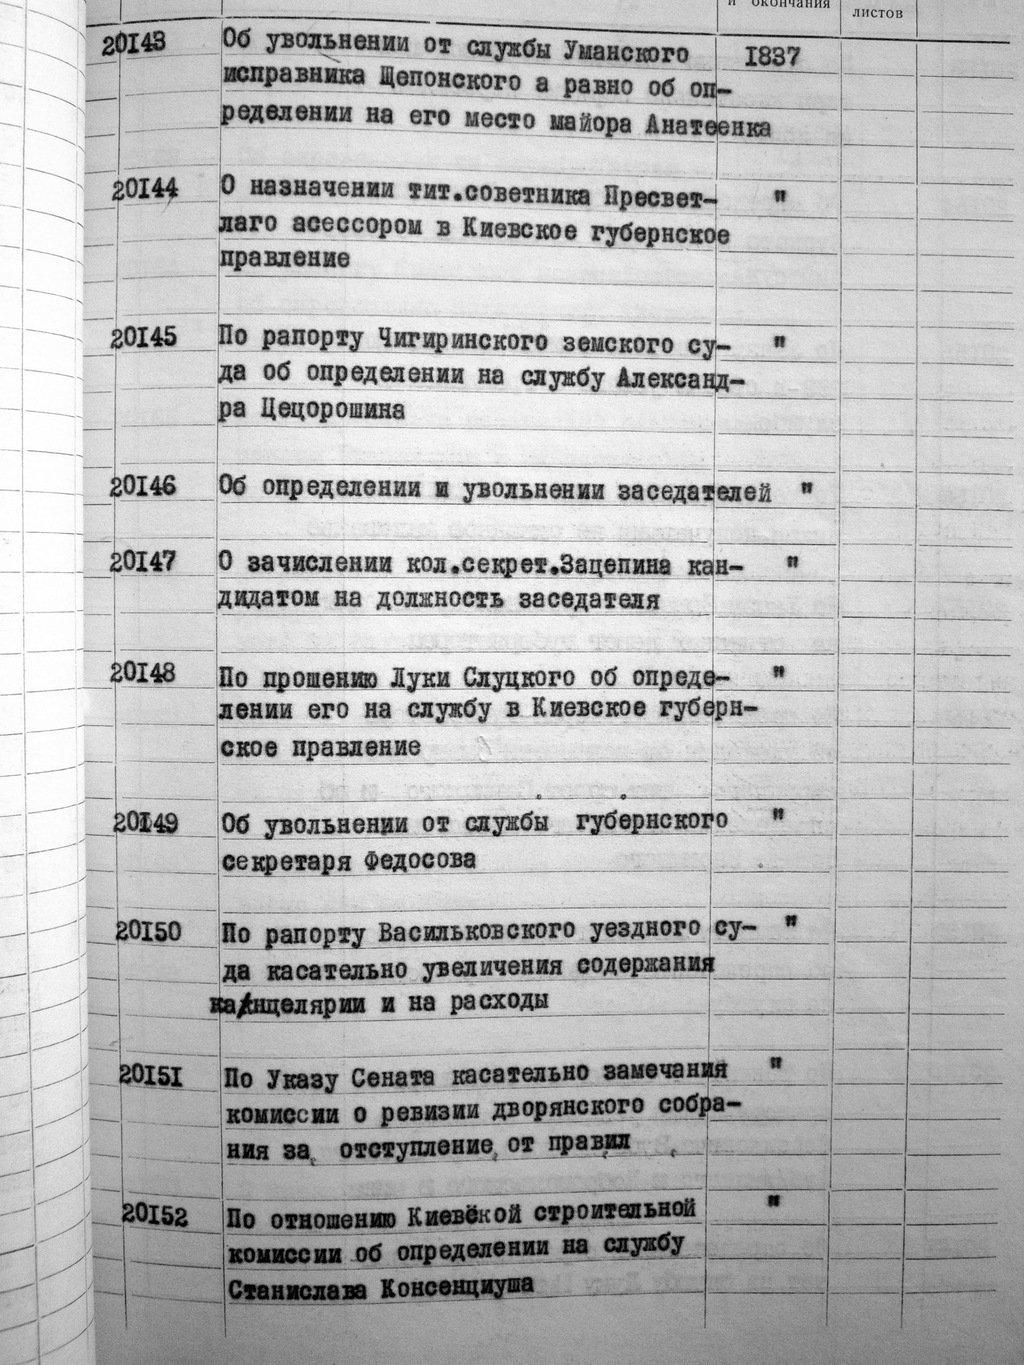 и окончания
листов
20143 Об увольнении от службы Уманского 1837
исправника Щепонского а равно об оп-
ределении на его место майора Анатеенка
20144 О назначении тит.советника Пресвет- "
лаго асессором в Киевское губернское
правление
20145 По рапорту Чигиринского земского су- "
да об определении на службу Александ-
ра Цецорошина
20146 Об определении и увольнении заседателей "
20147 О зачислении кол.секрет.Зацепина кан- "
дидатом на должность заседателя
20148 По прошению Луки Слуцкого об опреде- "
лении его на службу в Киевское губерн-
ское правление
20149 Об увольнении от службы губернского "
секретаря Федосова
20150 По рапорту Васильковского уездного су- "
да касательно увеличения содержания
канцелярии и на расходы
20151 По Указу Сената касательно замечания "
комиссии о ревизии дворянского собра-
ния за отступление от правил
20152 По отношению Киевской строительной "
комиссии об определении на службу
Станислава Консенциуша